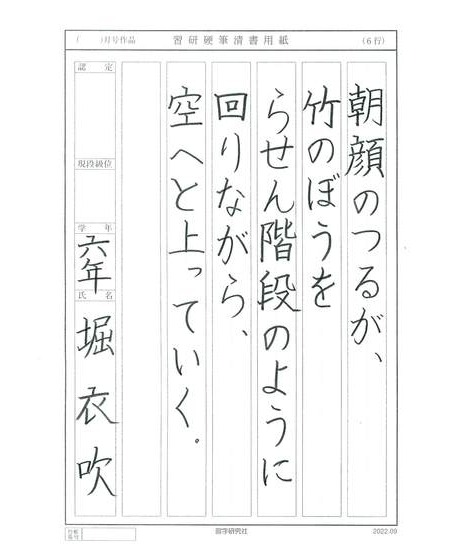 (　　)月号作品
習研硬筆清書用紙
(6行)
朝顔のつるが、
竹のぼうを
らせん階段のように
回りながら、
空へと上っていく。
認定
現段級位
学年
六年
氏名
堀衣吹
習字研究社
2022.09